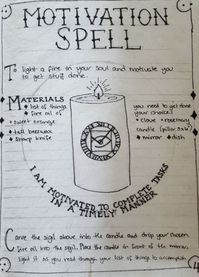 MOTIVATION
SPELL
To light a fire in your soul and motivate you
to get stuff done.
MATERIALS
list of things you need to get done
fire oil of your choice:
sweet orange clove rosemary
tall beeswax candle (pillar size)
sharp knife mirror dish
I AM MOTIVATED TO COMPLETE TASKS
IN A TIMELY MANNER
Carve the sigil above into the candle and drip your chosen
fire oil into the sigil. Place the candle in front of the mirror,
light it as you read through your list of things to accomplish.